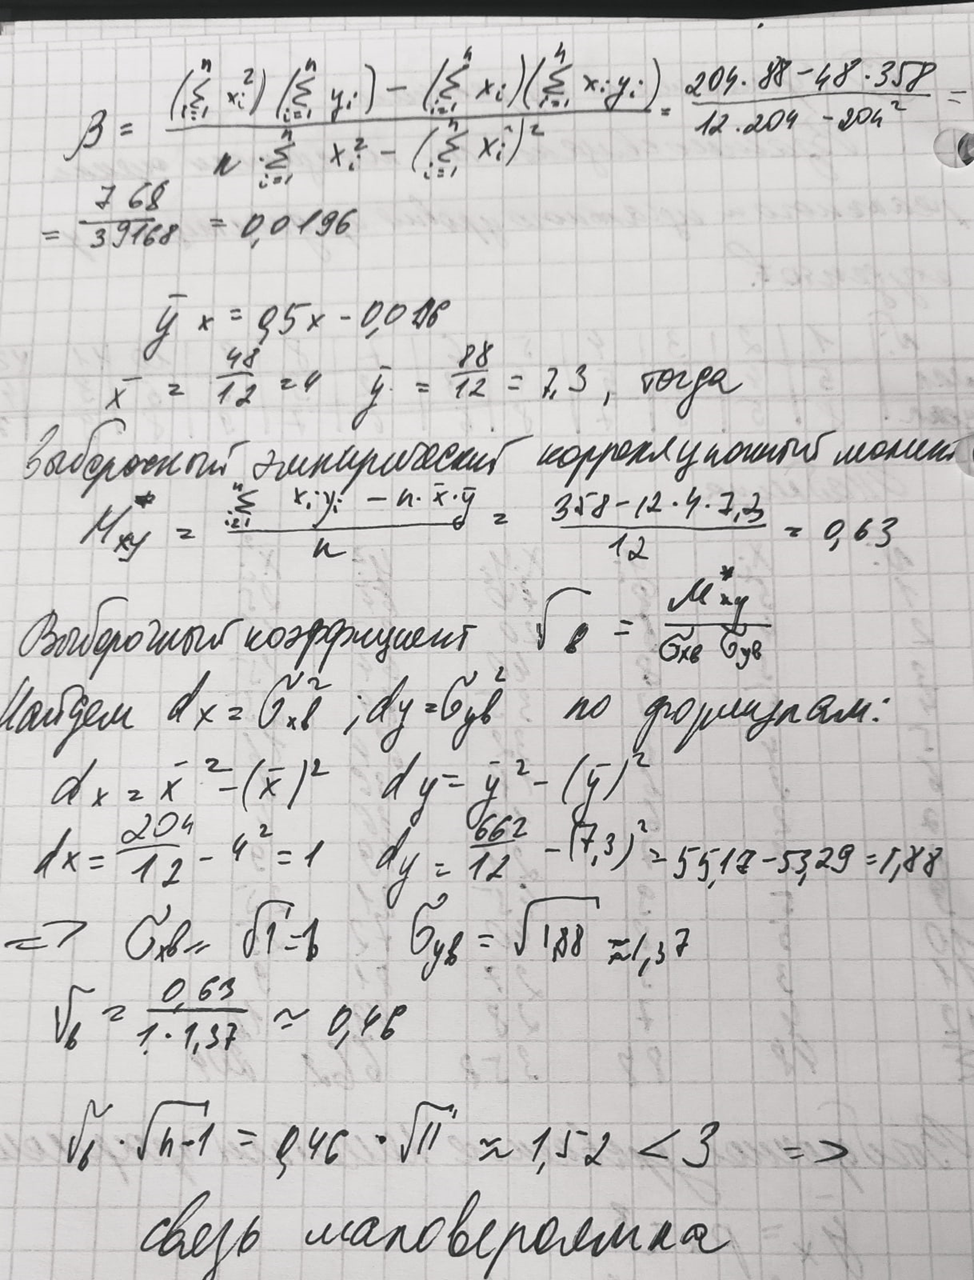 β = ((∑_{i=1}^{n} x_i^2)(∑_{i=1}^{n} y_i) − (∑_{i=1}^{n} x_i)(∑_{i=1}^{n} x_i y_i)) / (n · ∑_{i=1}^{n} x_i^2 − (∑_{i=1}^{n} x_i^2)^2) = (204·88 − 48·358) / (12·204 − 204^2) =
= 768 / 39168 = 0,0196
ȳ x = 0,5x − 0,0196
x̄ = 48/12 = 4 ȳ = 88/12 = 7,3, тогда
Выборочный эмпирический корреляционный момент
M*_{xy} = (∑_{i=1}^{n} x_i y_i − n·x̄·ȳ) / n = (358 − 12·4·7,3) / 12 = 0,63
Выборочный коэффициент r_в = M*_{xy} / (σ_{xв} σ_{yв})
Найдем d_x = σ_{xв}^2; d_y = σ_{yв}^2 по формулам:
d_x = x̄^2 − (x̄)^2 d_y = ȳ^2 − (ȳ)^2
d_x = 204/12 − 4^2 = 1 d_y = 662/12 − (7,3)^2 = 55,17 − 53,29 = 1,88
=> σ_{xв} = √1 = 1 σ_{yв} = √1,88 ≈ 1,37
r_в = 0,63 / (1·1,37) ≈ 0,46
r_в · √(n−1) = 0,46 · √11 ≈ 1,52 < 3 =>
связь маловероятна